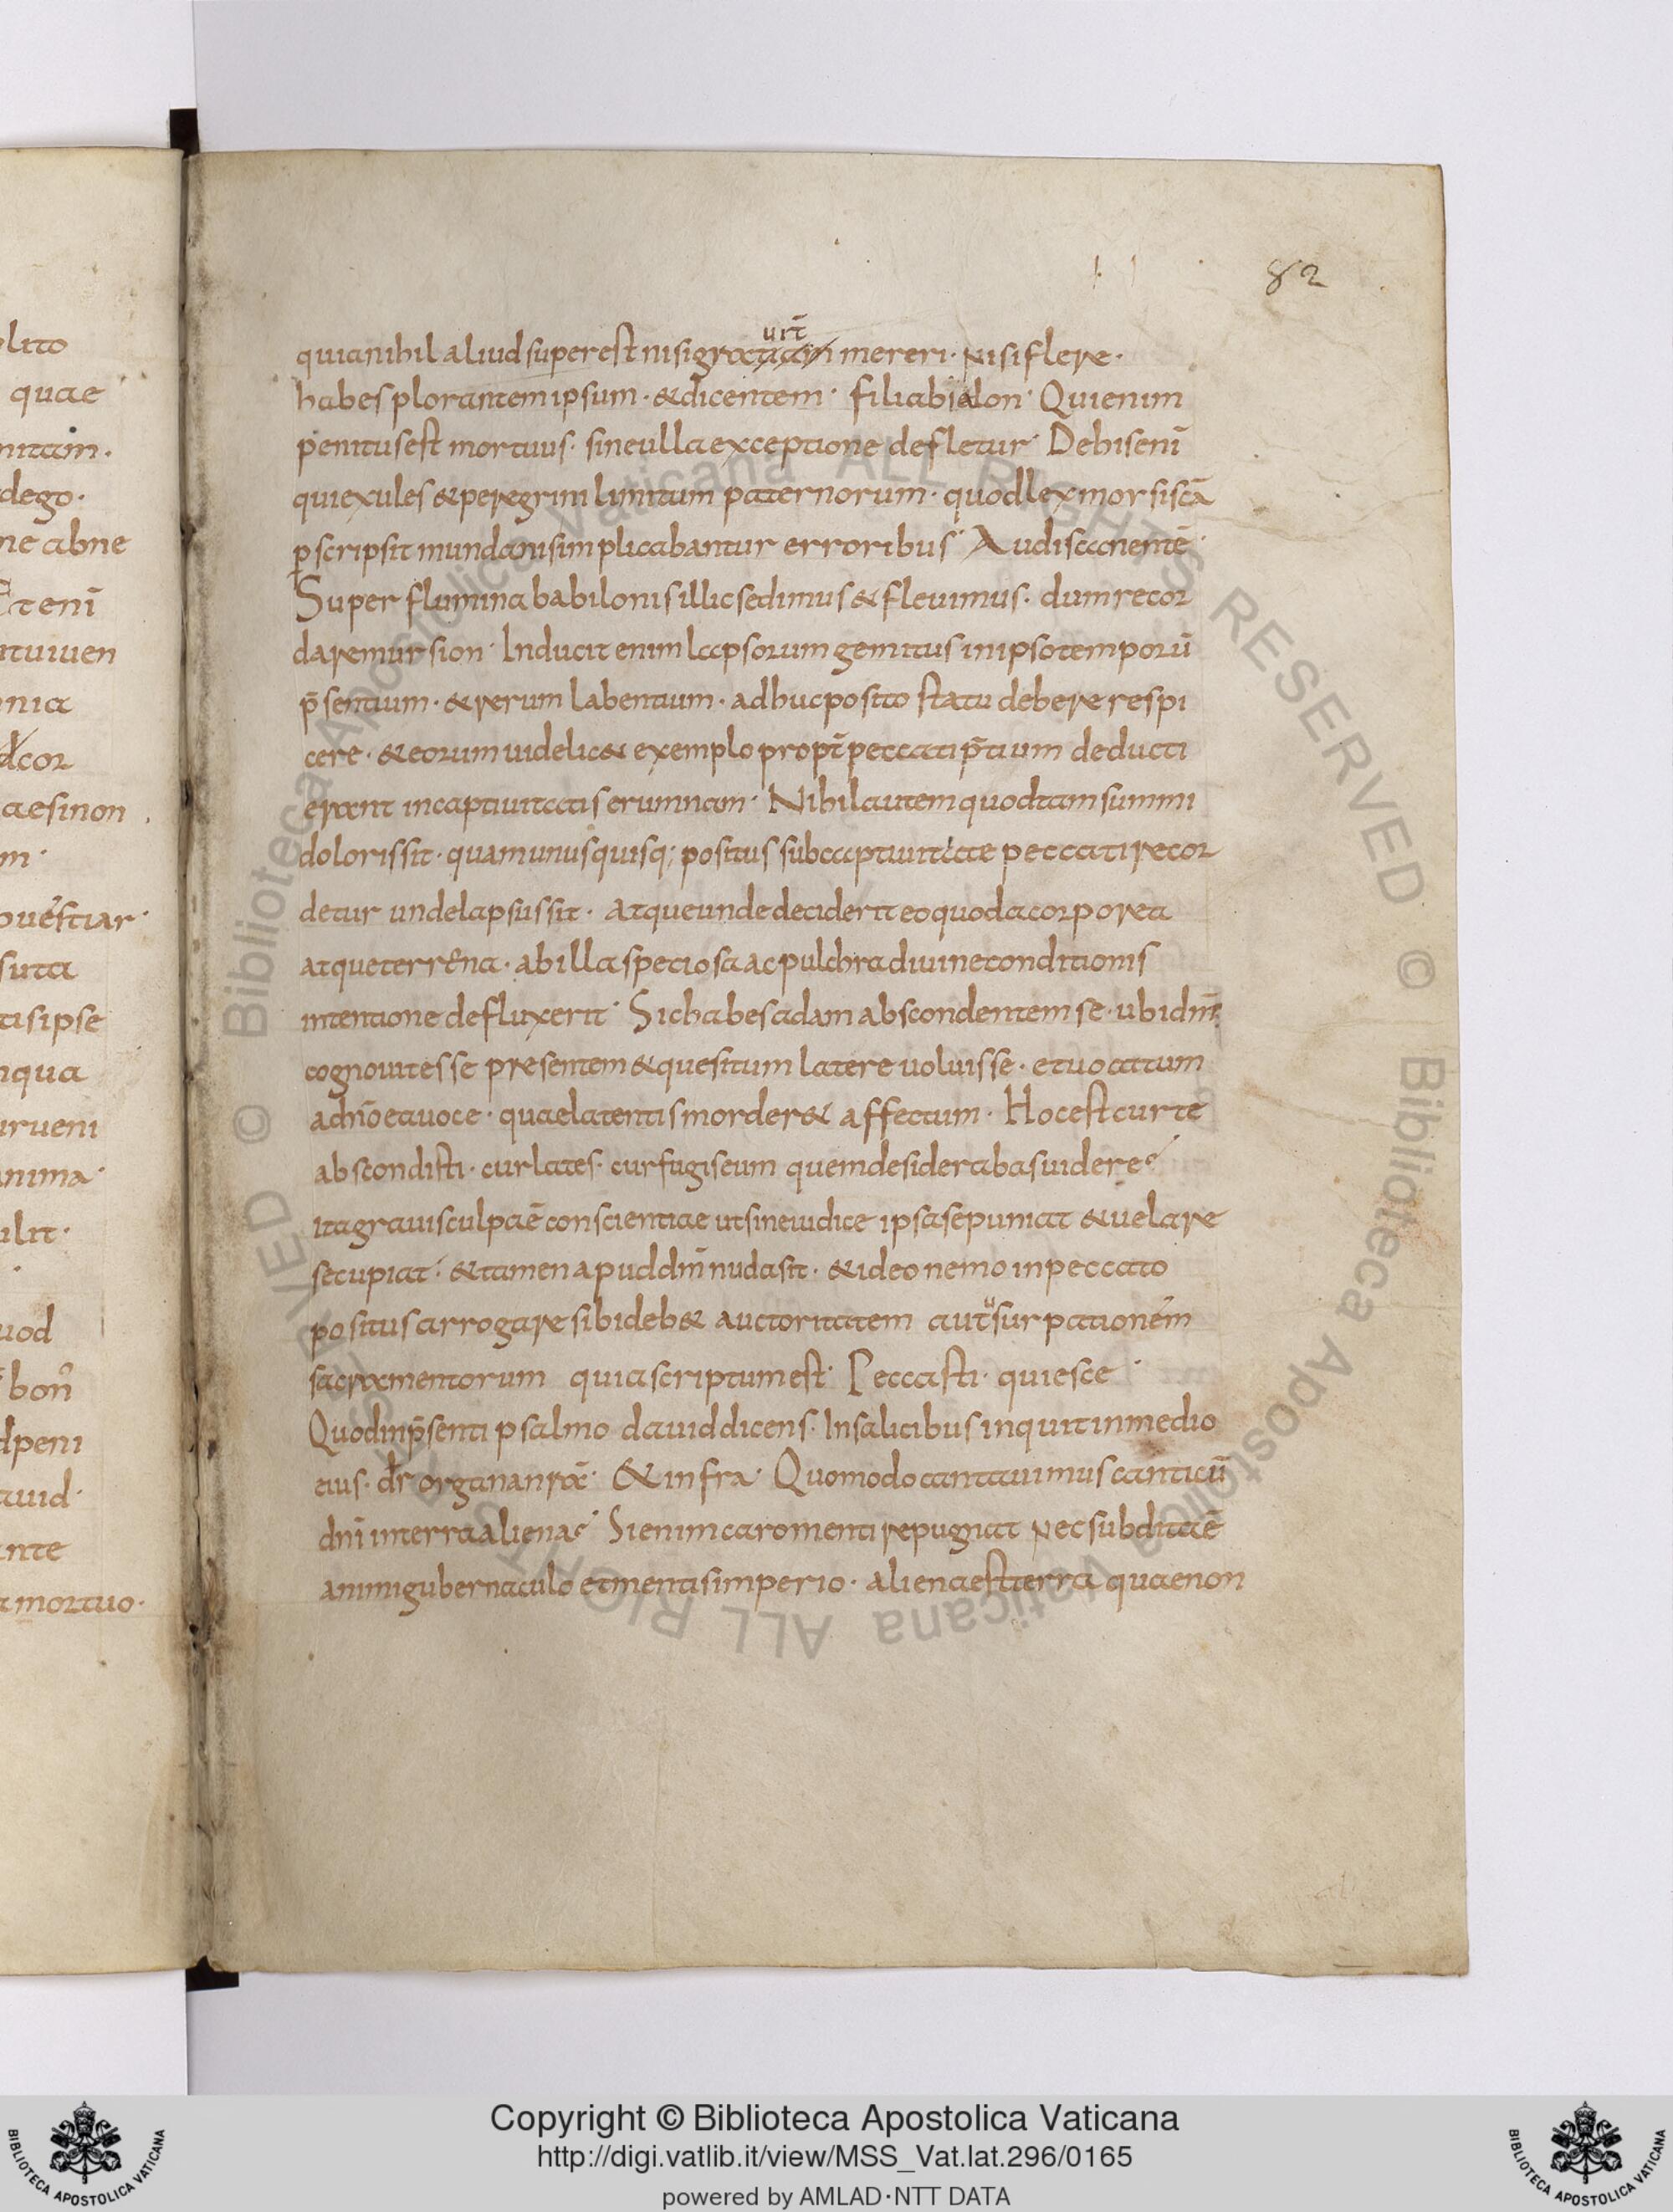 82
quia nihil aliud superest nisi gratiam urt̄ mereri · nisi flere ·
habes plorantem ipsum · & dicentem · filia babilon · Qui enim
penitus est mortuus · sine ulla exceptione defletur · Dehis enī
qui exules & peregrini limitum paternorum · quod lex mor siscā
p scripsit mundanis implicabantur erroribus · Audis canentē ·
Super flumina babilonis illic sedimus & fleuimus · dum recor
daremur sion · Inducit enim lapsorum gemitus in ipso temporū
p̄sentium · & rerum labentium · adhuc posito statu debere respi
cere · & eorum uidelic& exemplo propt̄ peccati p̄tium deducti
erant in captiuitatis erumnam · Nihil autem quod tam summi
doloris sit · quam unusquisq; positus sub captiuitate peccati recor
detur unde lapsus sit · atque unde deciderit eo quod a corporea
atque terrena · ab illa speciosa ac pulchra diuine conditionis
intentione defluxerit · Sic habes adam abscondentem se · ubi dn̄m
cognouit esse presentem & quesitum latere uoluisse · et uocatum
a dn̄o ea uoce · quae latentis morder& affectum · Hoc est cur te
abscondisti · cur lates · cur fugis eum quem desiderabas uidere
ita grauis culpae ē conscientiae ut sine iudice ipsa se puniat & uelare
se cupiat · & tamen apud dm̄ nuda sit · & ideo nemo in peccato
positus arrogare sibi deb& auctoritatem aut usurpationem
sacramentorum quia scriptum est · Peccasti · quiesce ·
Quod in p̄senti psalmo dauid dicens · In salicibus inquit in medio
eius · dr organa nrā · & infra · Quomodo cantauimus canticū
dn̄i in terra aliena · Si enim caro menti repugnat nec subdita ē
animi gubernaculo et mentis imperio · aliena est terra quae non
lito
quae
dego ·
ne abne
ituiuen
nia
cor
aesinon
m ·
uestiar ·
suta
tis ipse
nqua
urueni
nima ·
ilit ·
uod
bon
dpeni
auid ·
nte
amortuo ·
© Biblioteca Apostolica Vaticana ALL RIGHTS RESERVED © Biblioteca Apostolica Vaticana ALL RIGHTS RESERVED
Copyright © Biblioteca Apostolica Vaticana
http://digi.vatlib.it/view/MSS_Vat.lat.296/0165
powered by AMLAD·NTT DATA
BIBLIOTECA APOSTOLICA VATICANA
BIBLIOTECA APOSTOLICA VATICANA